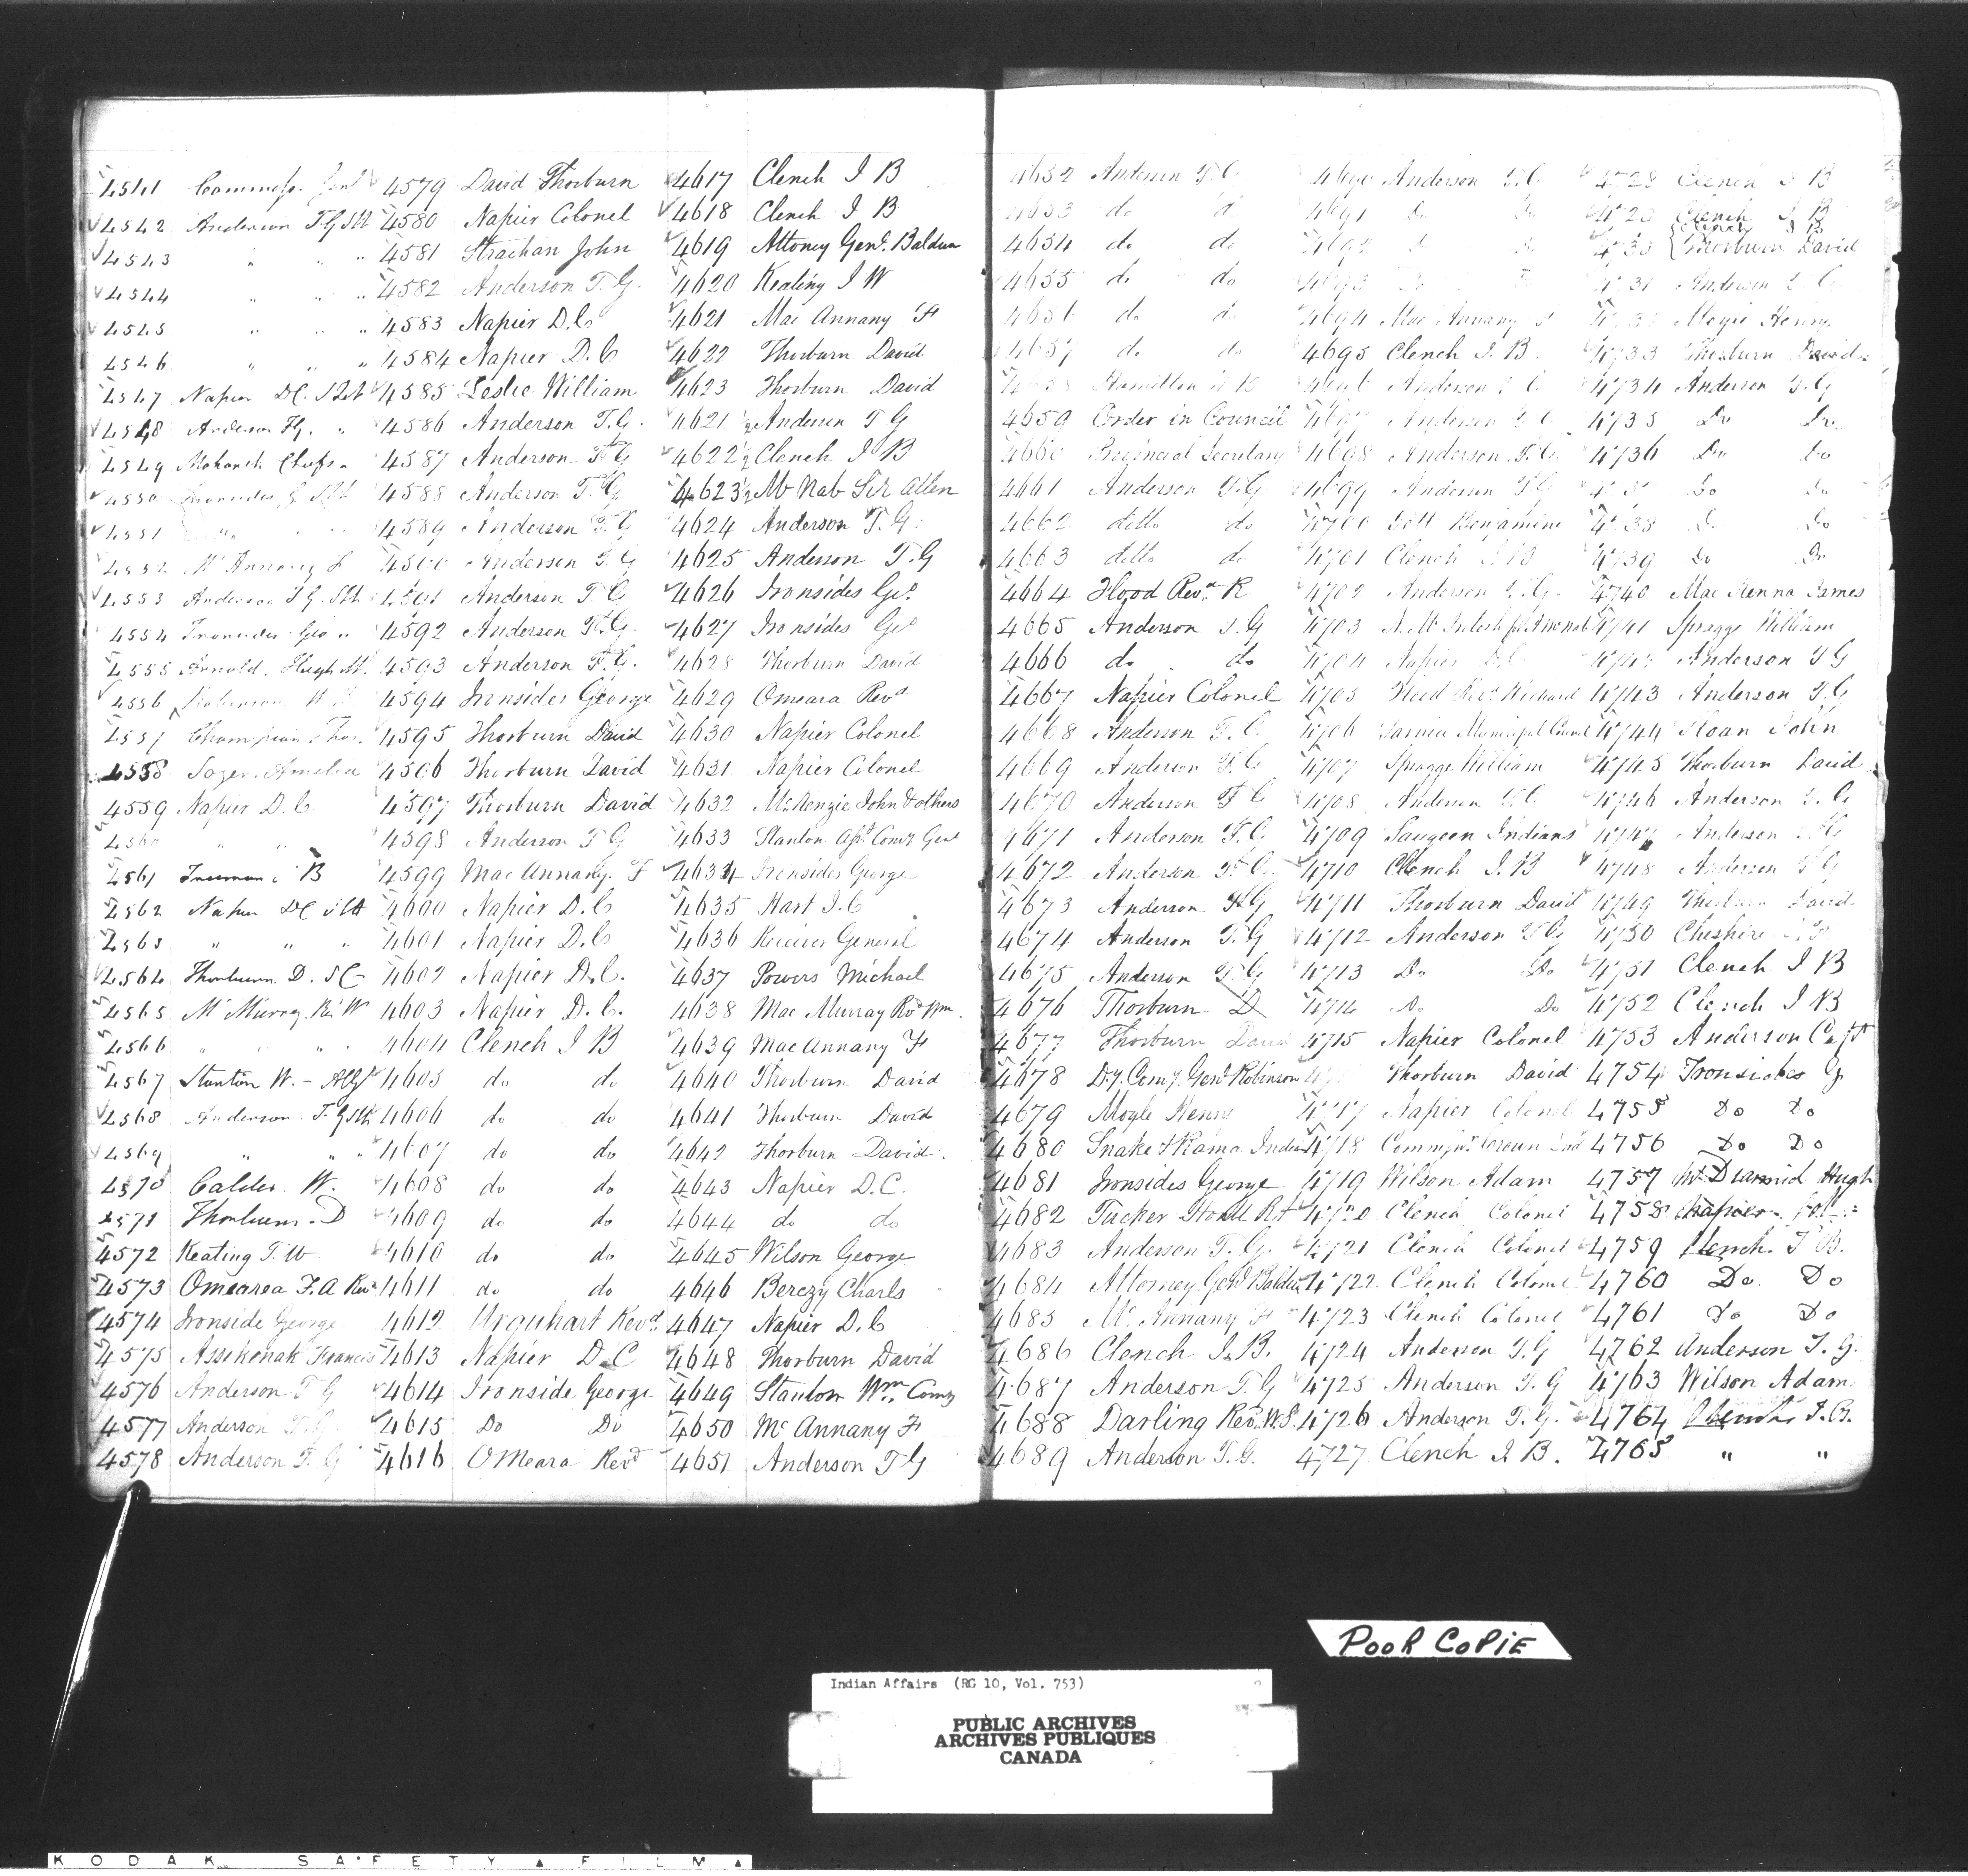 4541 Commissr. Genl
4542 Anderson T G S St
4543 " " "
4544 " " "
4545 " " "
4546 " " "
4547 Napier D.C. S St
4548 Anderson T.G. "
4549 Mohawk Chiefs
4550 Ironsides G
4551 "
4552 Mc Annany F
4553 Anderson T G
4554 Ironsides Geo "
4555 Arnold Hugh
4556 Robinson W
4557 Champion Thos.
4558 Amelia
4559 Napier D. C.
4560 " "
4561 Freeman B
4562 Napier D C
4563 " " "
4564 Thorburn D.
4565 Mc Murray Rev W
4566 " " "
4567 Stanton W.
4568 Anderson T. G
4569 " " "
4570 Calder W.
4571 Thorburn D
4572 Keating T. W
4573 Omearea F. A Revd
4574 Ironside George
4575 Assikenak Francis
4576 Anderson T G
4577 Anderson T G
4578 Anderson T. G
4579 David Thorburn
4580 Napier Colonel
4581 Strachan John
4582 Anderson T. G.
4583 Napier D. C
4584 Napier D. C
4585 Leslie William
4586 Anderson T. G.
4587 Anderson T G
4588 Anderson T. G
4589 Anderson T. G
4590 Anderson T G
4591 Anderson T. G
4592 Anderson T. G.
4593 Anderson T. G.
4594 Ironsides George
4595 Thorburn David
4596 Thorburn David
4597 Thorburn David
4598 Anderson T G
4599 Mac Annany. F
4600 Napier D. C
4601 Napier D. C
4602 Napier D. C.
4603 Napier D. C.
4604 Clench J B
4605 do do
4606 do do
4607 do do
4608 do do
4609 do do
4610 do do
4611 do do
4612 Urquhart Revd.
4613 Napier D. C
4614 Ironside George
4615 Do Do
4616 OMeara Revd
4617 Clench J B
4618 Clench J B
4619 Attoney Genl. Baldwin
4620 Keating J W
4621 Mac Annany F
4622 Thorburn David
4623 Thorburn David
4621½ Anderson T G
4622½ Clench J B
4623½ Mc Nab Sir Allen
4624 Anderson T. G.
4625 Anderson T. G
4626 Ironsides Geo
4627 Ironsides Geo
4628 Thorburn David
4629 Omeara Revd
4630 Napier Colonel
4631 Napier Colonel
4632 McKenzie John & others
4633 Stanton Asst. Comy Genl
4634 Ironsides George
4635 Hart J. C
4636 Reciever General
4637 Powers Michael
4638 Mac Murray Rev Wm.
4639 Mac Annany F
4640 Thorburn David
4641 Thorburn David
4642 Thorburn David.
4643 Napier D. C.
4644 do do
4645 Wilson George
4646 Berczy Charls
4647 Napier D. C
4648 Thorburn David
4649 Stanton Wm. Comy
4650 Mc Annany F
4651 Anderson T G
4652 Anderson T. G
4653 do do
4654 do do
4655 do do
4656 do do
4657 do do
Hamilton
4659 Order in Council
4660 Provincial Secretary
4661 Anderson T. G
4662 ditto do
4663 ditto do
4664 Flood Revd. R
4665 Anderson T. G
4666 do do
4667 Napier Colonel
4668 Anderson T. G.
4669 Anderson T. G
4670 Anderson T G
4671 Anderson T. G.
4672 Anderson T. G.
4673 Anderson T G
4674 Anderson T. G
4675 Anderson T. G
4676 Thorburn D
4677 Thorburn David
4678 Dy. Comy. Genl Robinson
4679 Moyle Henry
4680 Snake & Rama Indians
4681 Ironsides George
4682 Tucker
4683 Anderson T. G.
4684 Attorney Genl Baldwin
4685 Mc. Annany F
4686 Clench J. B.
4687 Anderson T. G
4688 Darling Rev. W. S.
4689 Anderson T. G.
4690 Anderson T. G
4691 Do Do
4692
4693
4694 Mac Annany F
4695 Clench J. B.
4696 Anderson T. G
4697 Anderson T G
4698 Anderson. T. G.
4699 Anderson T. G
4700 Benjamine
4701 Clench J B
4702 Anderson T. G.
4703
4704 Napier D. C
4705 Flood Revd Richard
4706 Sarnia Municipal Council
4707 Spragge William
4708 Anderson T. G
4709 Saugeen Indians
4710 Clench J. B
4711 Thorburn David
4712 Anderson T G
4713 Do Do
4714 Do Do
4715 Napier Colonel
Thorburn David
4717 Napier Colonel
4718 Commr. Crown Lnd
4719 Wilson Adam
4720 Clench Colonel
4721 Clench Colonel
4722 Clench Colonel
4723 Clench Colonel
4724 Anderson T. G
4725 Anderson T. G
4726 Anderson T. G.
4727 Clench J. B.
4728 Clench J B
4729 Clench J B
4730 { Clench J B
Thorburn David
4731 Anderson T. G
4732 Moyle Henry
4733 Thorburn David
4734 Anderson T. G
4735 Do Do
4736 Do Do
4737 Do Do
4738 Do Do
4739 Do Do
4740 Mac Kenna James
4741 Spragge William
4742 Anderson T G
4743 Anderson T. G
4744 Sloan John
4745 Thorburn David
4746 Anderson T. G
4747 Anderson T G
4748 Anderson T G
4749 Thorburn David
4750 Cheshire
4751 Clench J B
4752 Clench J B
4753 Anderson Capt
4754 Ironsides G
4755 Do Do
4756 Do Do
4757 Mc Diarmid Hugh
4758 Napier Col
4759 Clench J B.
4760 Do Do
4761 Do Do
4762 Anderson T. G.
4763 Wilson Adam
4764 Clench J. B.
4765 " "
POOR COPIE
Indian Affairs (RG 10, Vol. 753)
PUBLIC ARCHIVES
ARCHIVES PUBLIQUES
CANADA
KODAK SAFETY FILM